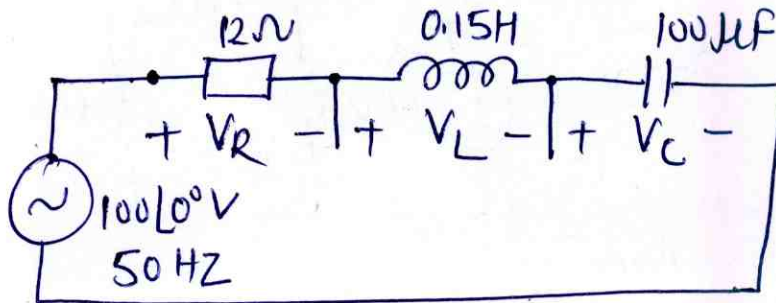 12Ω 0.15H 100μF
+ VR - + VL - + VC -
100∠0° V
50 HZ